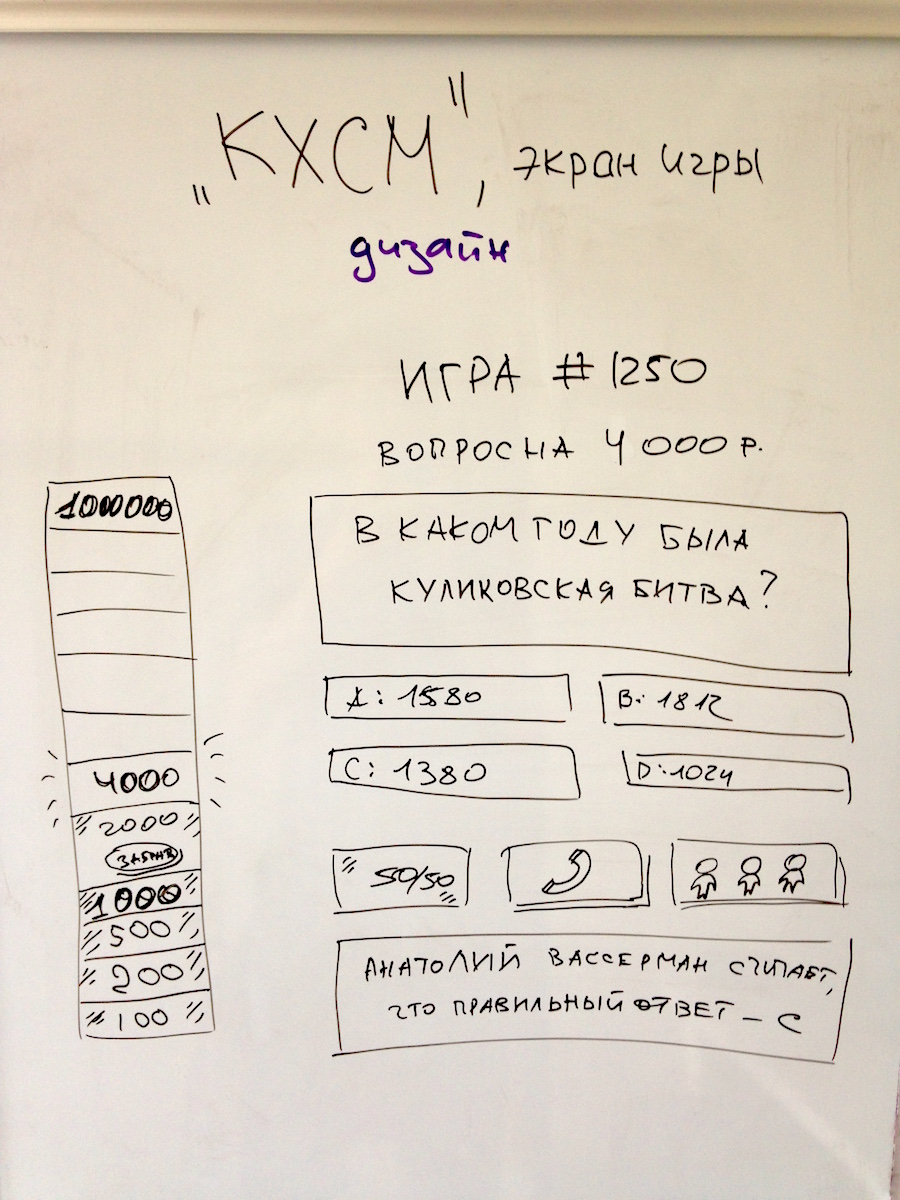 „КХСМ", экран игры
дизайн
ИГРА #1250
ВОПРОС НА 4000 Р.
1000000
4000
2000
ЗАБРАТЬ
1000
500
200
100
В КАКОМ ГОДУ БЫЛА
КУЛИКОВСКАЯ БИТВА?
A: 1580
B: 1812
C: 1380
D: 1024
50/50
АНАТОЛИЙ ВАССЕРМАН СЧИТАЕТ,
ЧТО ПРАВИЛЬНЫЙ ОТВЕТ – С